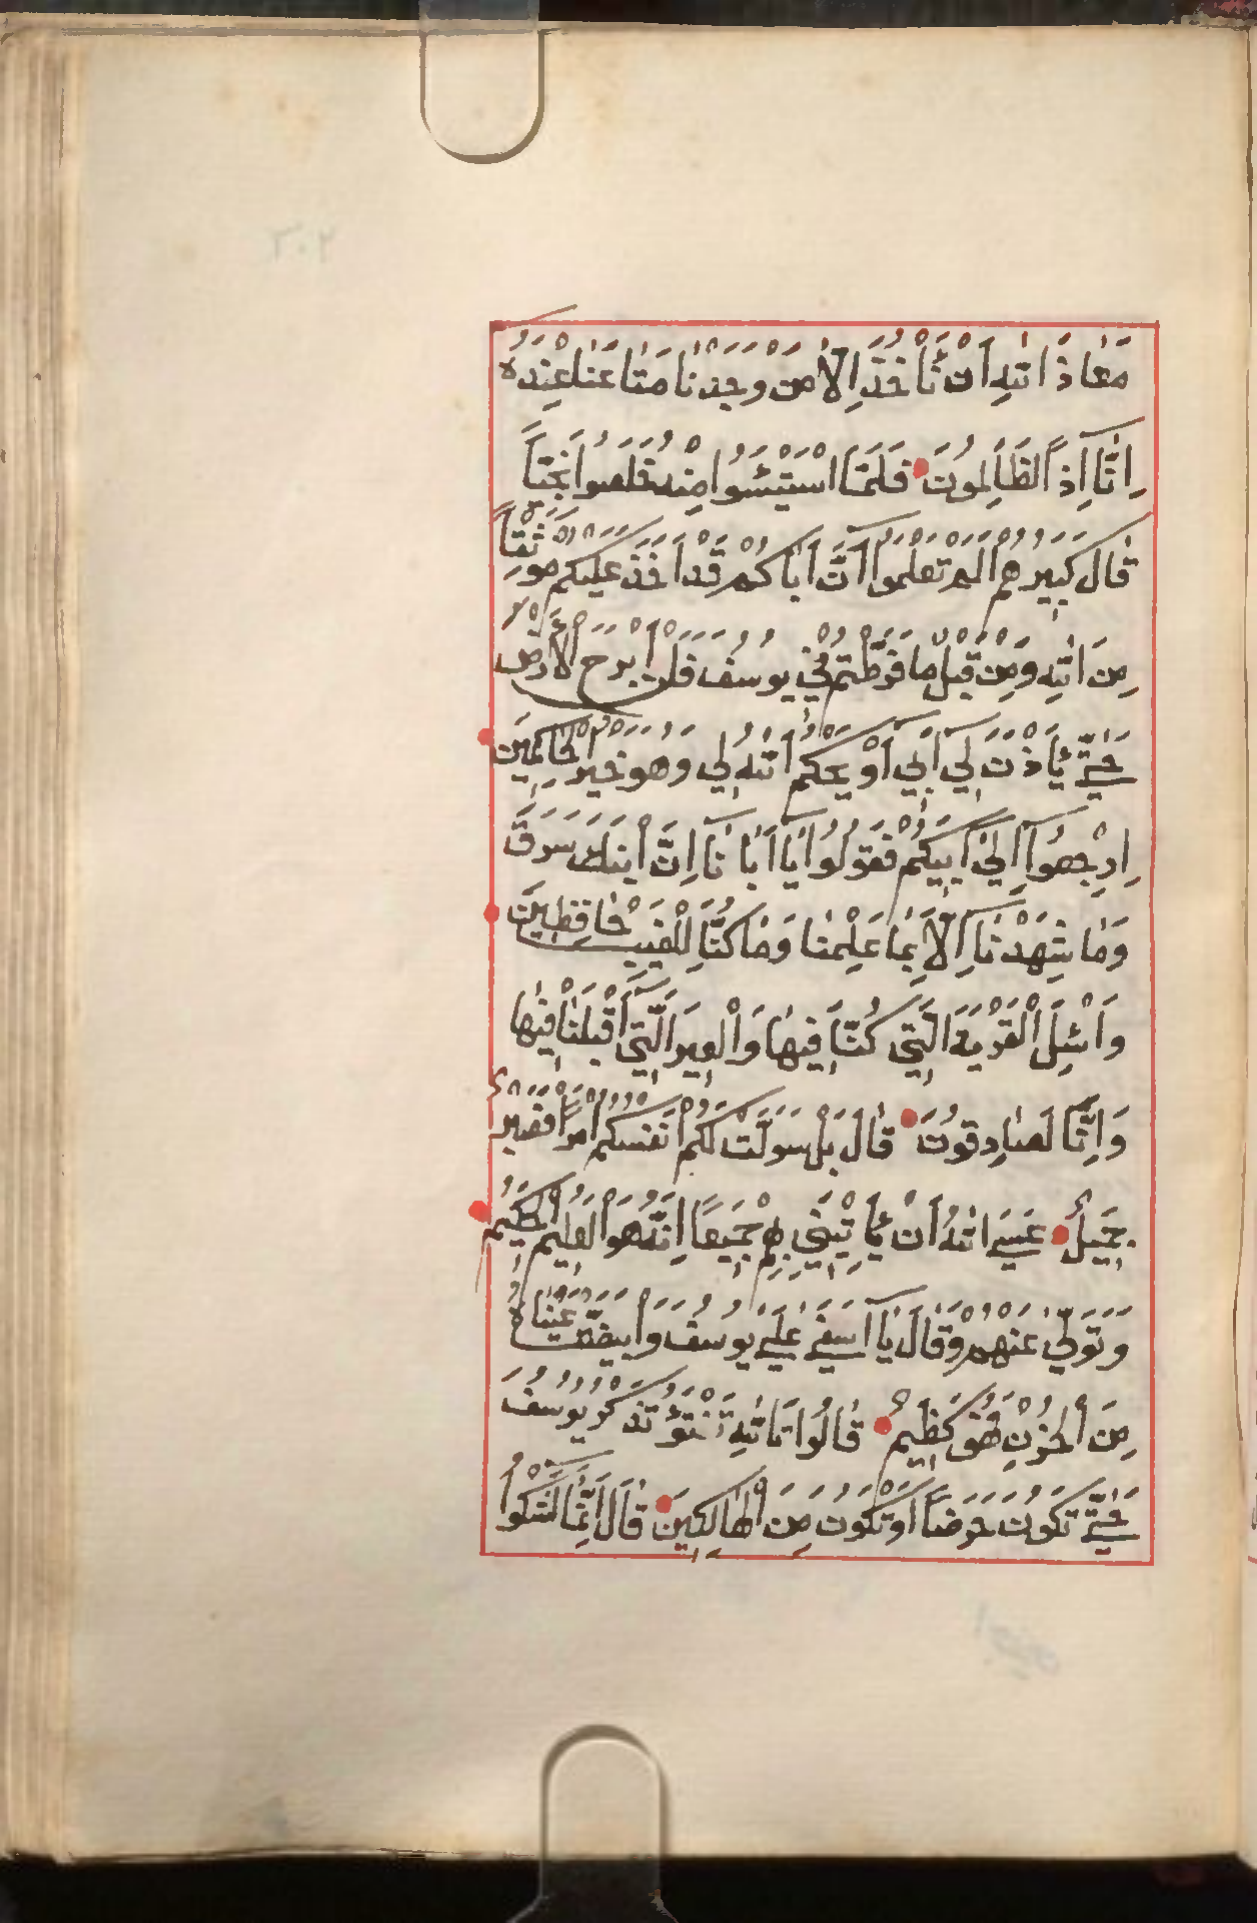 مَعَاذَ اللّٰهِ اَنْ نَأْخُذَ اِلَّا مَنْ وَجَدْنَا مَتَاعَنَا عِنْدَهُ
اِنَّآ اِذاً لَظَالِمُونَ فَلَمَّا اسْتَيْئَسُوا مِنْهُ خَلَصُوا نَجِيّاً
قَالَ كَبِيرُهُمْ اَلَمْ تَعْلَمُوآ اَنَّ اَبَاكُمْ قَدْ اَخَذَ عَلَيْكُمْ مَوْثِقاً
مِنَ اللّٰهِ وَمِنْ قَبْلُ مَا فَرَّطْتُمْ فِي يُوسُفَ فَلَنْ اَبْرَحَ الْاَرْضَ
حَتّٰى يَأْذَنَ لِي اَبِي اَوْ يَحْكُمَ اللّٰهُ لِي وَهُوَ خَيْرُ الْحَاكِمِينَ
اِرْجِعُوآ اِلٰى اَبِيكُمْ فَقُولُوا يَآ اَبَانَآ اِنَّ ابْنَكَ سَرَقَ
وَمَا شَهِدْنَآ اِلَّا بِمَا عَلِمْنَا وَمَا كُنَّا لِلْغَيْبِ حَافِظِينَ
وَاسْئَلِ الْقَرْيَةَ الَّتِي كُنَّا فِيهَا وَالْعِيرَ الَّتِي اَقْبَلْنَا فِيهَا
وَاِنَّا لَصَادِقُونَ قَالَ بَلْ سَوَّلَتْ لَكُمْ اَنْفُسُكُمْ اَمْراً فَصَبْرٌ
جَمِيلٌ عَسَى اللّٰهُ اَنْ يَأْتِيَنِي بِهِمْ جَمِيعاً اِنَّهُ هُوَ الْعَلِيمُ الْحَكِيمُ
وَتَوَلّٰى عَنْهُمْ وَقَالَ يَآ اَسَفٰى عَلٰى يُوسُفَ وَابْيَضَّتْ عَيْنَاهُ
مِنَ الْحُزْنِ فَهُوَ كَظِيمٌ قَالُوا تَاللّٰهِ تَفْتَؤُ تَذْكُرُ يُوسُفَ
حَتّٰى تَكُونَ حَرَضاً اَوْ تَكُونَ مِنَ الْهَالِكِينَ قَالَ اِنَّمَآ اَشْكُوا